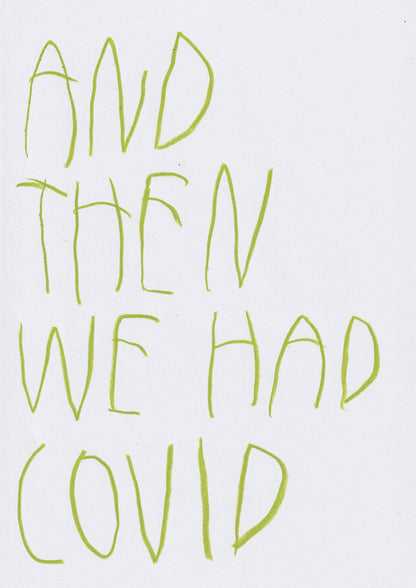 AND
THEN
WE HAD
COVID